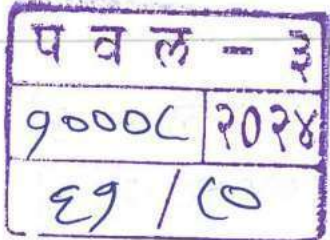 प व ल - ३
१०००८ २०२४
६१ / ८०